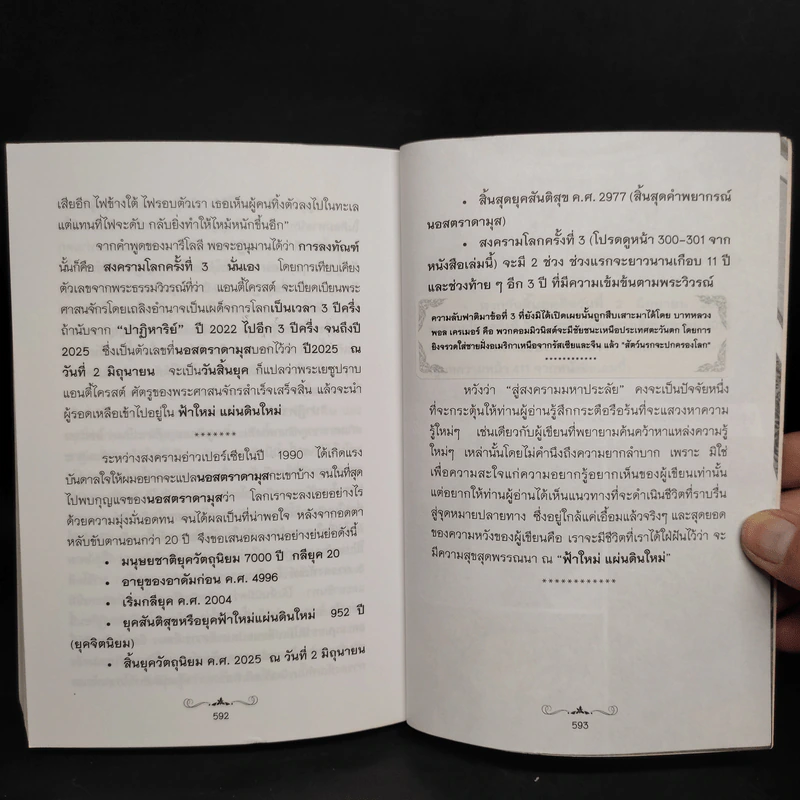 เสียอีก ไฟข้างใต้ ไฟรอบตัวเรา เธอเห็นผู้คนทิ้งตัวลงไปในทะเล
แต่แทนที่ไฟจะดับ กลับยิ่งทำให้ไหม้หนักขึ้นอีก"
จากคำพูดของมารีโลลี พอจะอนุมานได้ว่า การลงทัณฑ์
นั้นก็คือ สงครามโลกครั้งที่ 3 นั่นเอง โดยการเทียบเคียง
ตัวเลขจากพระธรรมวิวรณ์ที่ว่า แอนตี้ไครสต์ จะเบียดเบียนพระ
ศาสนจักรโดยเถลิงอำนาจเป็นเผด็จการโลกเป็นเวลา 3 ปีครึ่ง
ถ้านับจาก "ปาฏิหาริย์" ปี 2022 ไปอีก 3 ปีครึ่ง จนถึงปี
2025 ซึ่งเป็นตัวเลขที่นอสตราดามุสบอกไว้ว่า ปี2025 ณ
วันที่ 2 มิถุนายน จะเป็นวันสิ้นยุค ก็แปลว่าพระเยซูปราบ
แอนตี้ไครสต์ ศัตรูของพระศาสนจักรสำเร็จเสร็จสิ้น แล้วจะนำ
ผู้รอดเหลือเข้าไปอยู่ใน ฟ้าใหม่ แผ่นดินใหม่
*******
ระหว่างสงครามอ่าวเปอร์เซียในปี 1990 ได้เกิดแรง
บันดาลใจให้ผมอยากจะแปลนอสตราดามุสกะเขาบ้าง จนในที่สุด
ไปพบกุญแจของนอสตราดามุสว่า โลกเราจะลงเอยอย่างไร
ด้วยความมุ่งมั่นอดทน จนได้ผลเป็นที่น่าพอใจ หลังจากอดตา
หลับขับตานอนกว่า 20 ปี จึงขอเสนอผลงานอย่างย่นย่อดังนี้
• มนุษยชาติยุควัตถุนิยม 7000 ปี กลียุค 20
• อายุของอาดัมก่อน ค.ศ. 4996
• เริ่มกลียุค ค.ศ. 2004
• ยุคสันติสุขหรือยุคฟ้าใหม่แผ่นดินใหม่ 952 ปี
(ยุคจิตนิยม)
• สิ้นยุควัตถุนิยม ค.ศ. 2025 ณ วันที่ 2 มิถุนายน
592
• สิ้นสุดยุคสันติสุข ค.ศ. 2977 (สิ้นสุดคำพยากรณ์
นอสตราดามุส)
• สงครามโลกครั้งที่ 3 (โปรดดูหน้า 300-301 จาก
หนังสือเล่มนี้) จะมี 2 ช่วง ช่วงแรกจะยาวนานเกือบ 11 ปี
และช่วงท้าย ๆ อีก 3 ปี ที่มีความเข้มข้นตามพระวิวรณ์
ความลับฟาติมาข้อที่ 3 ที่ยังมิได้เปิดเผยนั้นถูกสืบเสาะมาได้โดย บาทหลวง
พอล เครเมอร์ คือ พวกคอมมิวนิสต์จะมีชัยชนะเหนือประเทศตะวันตก โดยการ
ยิงจรวดใส่ชายฝั่งอเมริกาเหนือจากรัสเซียและจีน แล้ว "สัตว์นรกจะปกครองโลก"
************
หวังว่า "สู่สงครามมหาประลัย" คงจะเป็นปัจจัยหนึ่ง
ที่จะกระตุ้นให้ท่านผู้อ่านรู้สึกกระตือรือร้นที่จะแสวงหาความ
รู้ใหม่ๆ เช่นเดียวกับผู้เขียนที่พยายามค้นคว้าหาแหล่งความรู้
ใหม่ๆ เหล่านั้นโดยไม่คำนึงถึงความยากลำบาก เพราะ มิใช่
เพื่อความสะใจแก่ความอยากรู้อยากเห็นของผู้เขียนเท่านั้น
แต่อยากให้ท่านผู้อ่านได้เห็นแนวทางที่จะดำเนินชีวิตที่ราบรื่น
สู่จุดหมายปลายทาง ซึ่งอยู่ใกล้แค่เอื้อมแล้วจริงๆ และสุดยอด
ของความหวังของผู้เขียนคือ เราจะมีชีวิตที่เราได้ใฝ่ฝันไว้ว่า จะ
มีความสุขสุดพรรณนา ณ "ฟ้าใหม่ แผ่นดินใหม่"
************
593